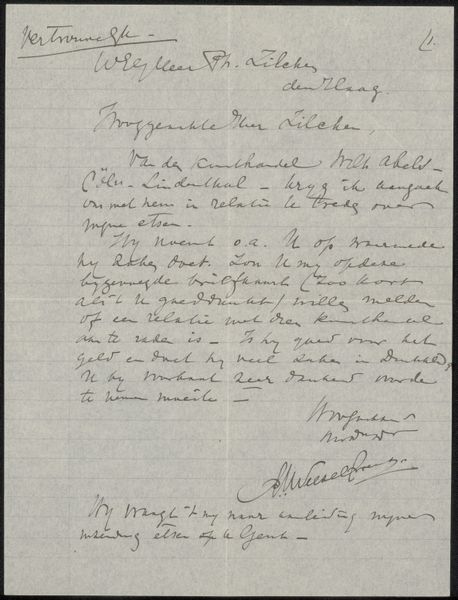 Vertrouwelijk -
WEdHeer Ph. Zilcken
den Haag.
Hooggeachte Heer Zilcken,
Van den kunsthandel Wilh. Abels -
Cöln - Lindenthal - kryg ik aanzoek
om met hem in relatie te treden over
myne etsen.
Hy noemt o.a. U op waarmede
hy zaken doet. Zou U my op deze
bygevoegde briefkaart (zoo kort
als 't U goeddunkt) willen melden
of een relatie met dien kunsthandel
aan te raden is - Is hy goed voor het
geld en doet hy veel zaken in Duitschland?
U by voorbaat zeer dankend voor de
te nemen moeite -
Hoogachtend
Hy vraagt 't my naar aanleiding myner
inzending etsen op te Gent -